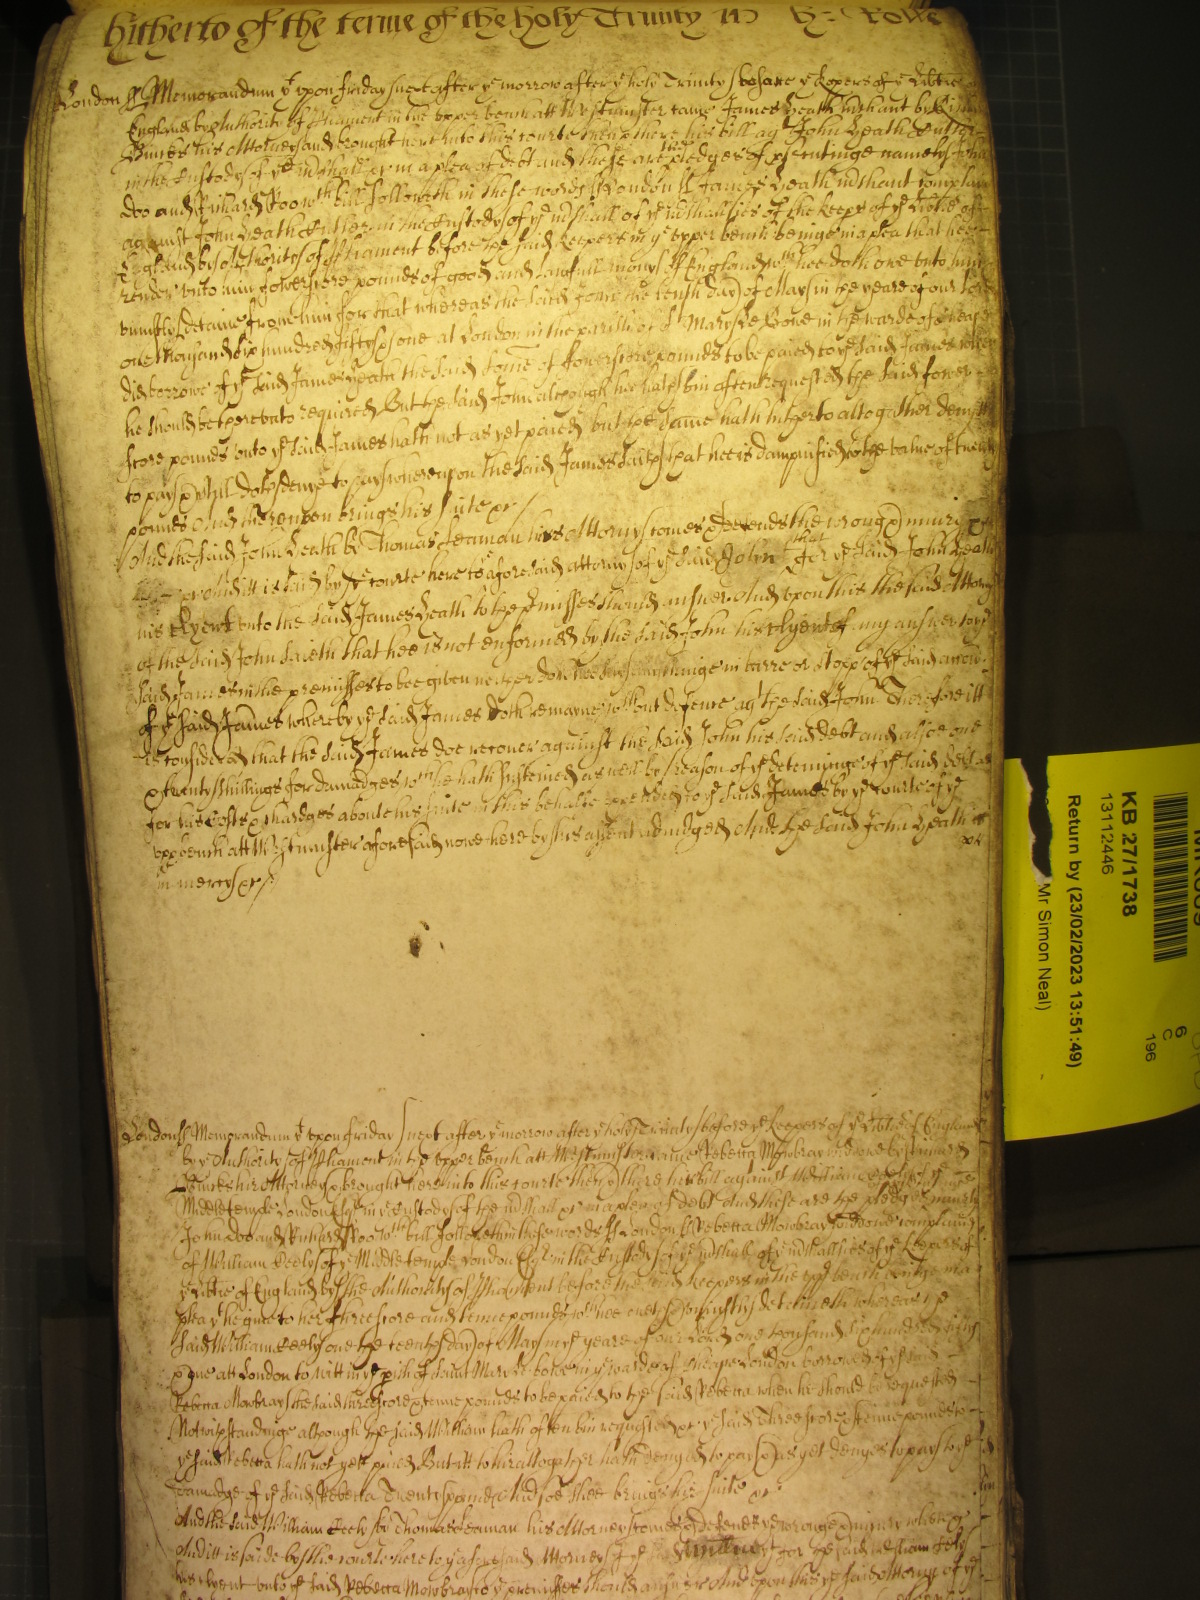 hitherto of the terme of the holy Trinity
London ss Memorandum yt upon friday next after ye morrow after ye holy Trinity before ye keepers of ye Libtie of
England by Authority of Parliament in the upper bench att Westminster came James Heath
his Attorney and brought here into this courte then & there his bill agt John Heath
in the custody of ye Mrshall &c in a plea of debt and these are the pledges of prsentinge namely John
doo and Richard Roo wch bill followeth in these words ss London ss James Heath complaines
against John Heath in the custody of ye Mrshall of ye Mrshallsies of the keeprs of ye Libtie of
England by Authoritey of Parliament before the said keepers in ye upper bench beinge in a plea that hee
render unto him fowerscore pounds of good and lawfull money of England wch hee doth owe unto him &
unjustly detaine from him for that whereas the said John the tenth day of May in the yeare of our Lord
one thousand six hundred fifty & one at London in the parish of St Mary Le Bowe in the warde of Cheape
did borrowe of ye said James Heath the said some of fowerscore pounds to be paied to ye said James when
he should be thereunto required But the said John although hee hath bin often requested the said fower
score pounds unto ye said James hath not as yet paied but the same hath hitherto altogather denyed
to pay & still doth denye to pay whereupon the said James saith that hee is dampnified to the value of twenty
pounds And thereupon brings his suite &c
And the said John Heath by Thomas Leaman his Attorny comes & defends the wrong & injury
&c And itt is said by ye courte here to ye aforesaid attorny of ye said John that for ye said John Heath
his clyent unto the said James Heath to the prmisses should answer And upon this the said Attorny
of the said John saieth that hee is not enformed by the said John his clyent of any answer to ye
said James in the premisses to bee given neither doth hee say any thinge in barre or stopp of ye said accon
of ye said James whereby ye said James doth remayne without defence agt the said John Therefore itt
is considered that the said James doe recover against the said John his said debt and alsoe one
& twenty shillings for damadges wch he hath susteined as well by reason of ye deteininge of ye said debt as
for his costs & chardges about his suite in this behalfe expended to ye said James by ye courte of ye
upp bench att Westminster aforesaid nowe here by his assent adiudged And the said John Heath is
in mercy &c
London ss Memorandum yt upon friday next after ye morrow after ye holy Trinity before ye keepers of ye Libtie of England
by ye Authority of Parliament in the upper bench att Westminster came Rebecca Mowbray widdowe by Edward
his Attorney & brought here into this courte then & there her bill against William Ceely of ye
Middle temple London Esqr in ye custody of the Mrshall &c in a plea of debt And these are the pledges namely
John doo and Richard Roo wch bill followeth in these words ss London ss Rebecca Mowbray widdowe complaines
of William Ceely of ye Middle temple London Esqr in the Custody of ye Mrshall of ye Mrshallsies of ye keepers of
ye Libtie of England by the Authority of Parliament before the said keepers in the upp bench beinge in a
plea yt he give to her threescore and tenne pounds wch hee oweth & uniustly deteineth whereas the
said William Ceely one the tenth day of May in ye yeare of our Lord one thousand six hundred fifty
& one att London to witt in ye prish of saint Mary le bowe in ye warde of Cheape London borrowed of ye said
Rebecca Mowbray the said threescore & tenne pounds to be paied to the said Rebecca when he should be requested
Notwithstandinge although the said William hath often bin requested &c ye said threescore & tenne pounds to
ye said Rebecca hath not yett paied But itt to her altogather hath denyed to pay & as yet denyes to pay to ye
damadge of ye said Rebecca Twenty pounds And soe shee brings her suite &c
And the said William Ceely by Thomas Leaman his Attorney comes & defends ye wronge & injury when &c
And itt is saide by the courte here to ye aforesaid Attorney of ye said yt for the said William Ceely
his clyent unto ye said Rebecca Mowbray to ye premisses should answere And upon this ye said Attorny of ye
KB 27/1738
13112446
Return by (23/02/2023 13:51:49)
Mr Simon Neal)
6
C
196